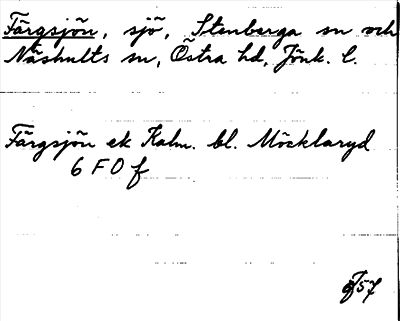 Färgsjön, sjö, Stenberga sn och
Näshults sn, Östra hd, Jönk. l.
Färgsjön ek Kalm. bl. Möcklaryd
6 F 0 f
57